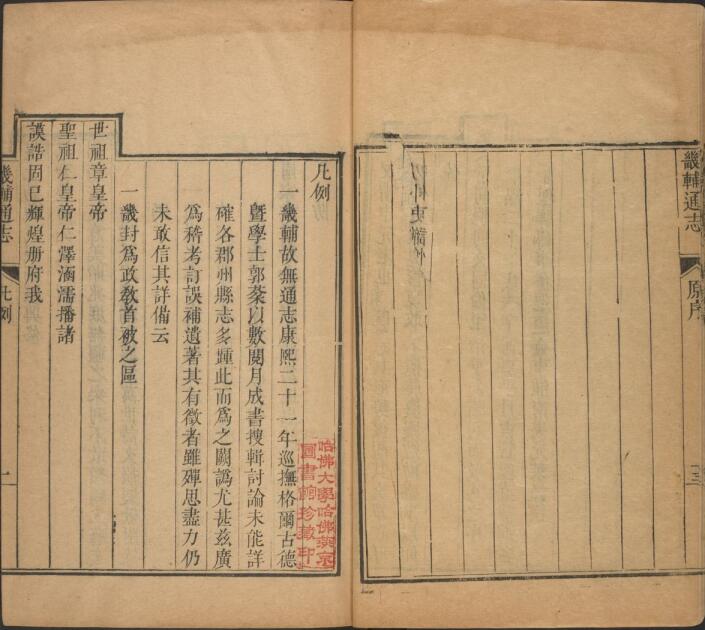 畿輔通志
原序
三
凡例
一畿輔故無通志康熙二十一年巡撫格爾古德
暨學士郭棻以數閱月成書搜輯討論未能詳
確各郡州縣志多踵此而為之闕譌尤甚兹廣
為稽考訂誤補遺著其有徵者雖殫思盡力仍
未敢信其詳備云
一畿封為政教首被之區
世祖章皇帝
聖祖仁皇帝仁澤涵濡播諸
謨誥固已輝煌册府我
畿輔通志
凡例
一
哈佛大學哈佛燕京
圖書館珍藏印